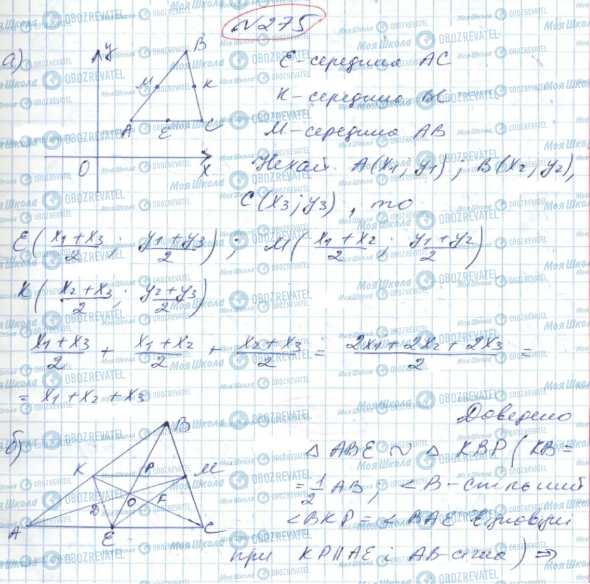 №275
а)
y
B
E – середина AC
M
K
K – середина BC
A
E
C
M – середина AB
O
x
Нехай A(x₁; y₁); B(x₂; y₂),
C(x₃; y₃), то
E((x₁+x₃)/2; (y₁+y₃)/2); M((x₁+x₂)/2; (y₁+y₂)/2)
K((x₂+x₃)/2; (y₂+y₃)/2)
(x₁+x₃)/2 + (x₁+x₂)/2 + (x₂+x₃)/2 = (2x₁+2x₂+2x₃)/2 =
= x₁+x₂+x₃
Доведено
б)
B
K
P
M
O
F
A
E
C
△ABE ~ △KBP (KB =
= 1/2 AB; ∠B – спільний
∠BKP = ∠BAE відповідні
при KP∥AE і AB – січна) ⇒
Моя Школа
OBOZREVATEL